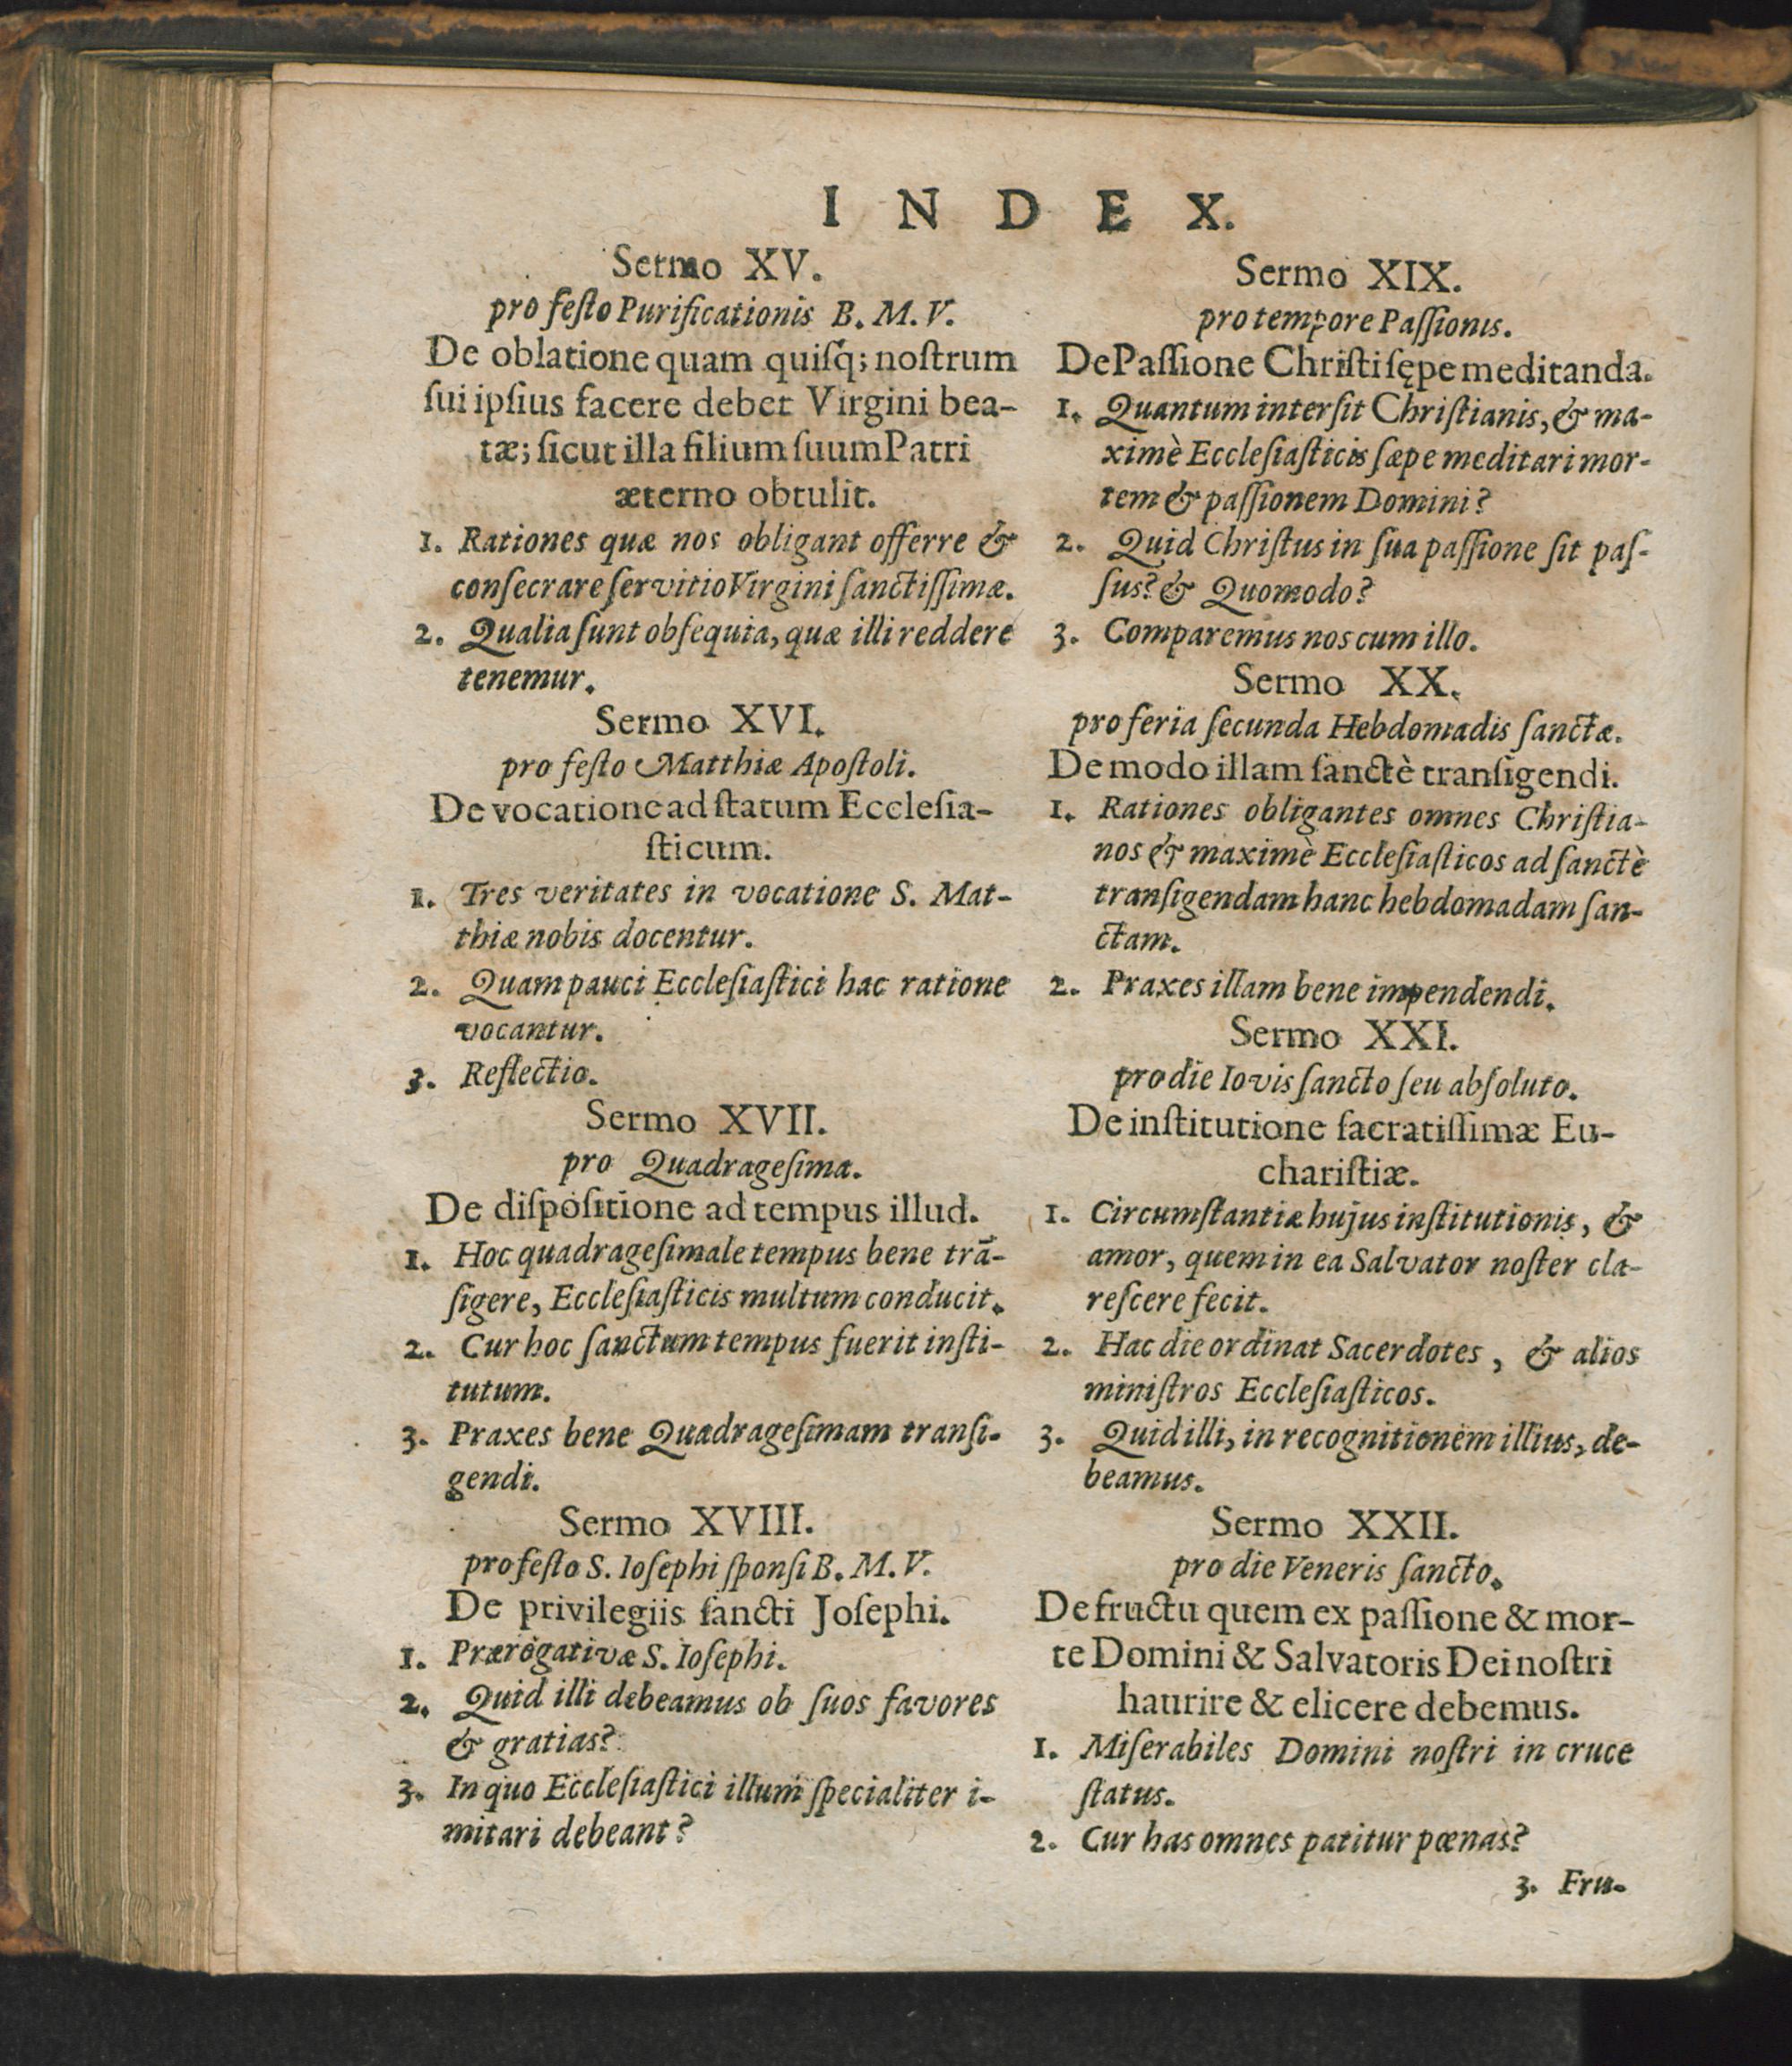 INDEX.
Sermo XV.
pro feſto Purificationis B. M. V.
De oblatione quam quiſq́; noſtrum
ſui ipſius facere debet Virgini bea-
tæ; ſicut illa filium ſuum Patri
æterno obtulit.
1. Rationes quæ nos obligant offerre &
conſecrare ſervitio Virgini ſanctiſſimæ.
2. Qualia ſunt obſequia, quæ illi reddere
tenemur.
Sermo XVI.
pro feſto Matthiæ Apoſtoli.
De vocatione ad ſtatum Eccleſia-
ſticum.
1. Tres veritates in vocatione S. Mat-
thiæ nobis docentur.
2. Quam pauci Eccleſiaſtici hac ratione
vocantur.
3. Reflectio.
Sermo XVII.
pro Quadrageſima.
De diſpoſitione ad tempus illud.
1. Hoc quadrageſimale tempus bene trã-
ſigere, Eccleſiaſticis multum conducit.
2. Cur hoc ſanctum tempus fuerit inſti-
tutum.
3. Praxes bene Quadrageſimam tranſi-
gendi.
Sermo XVIII.
pro feſto S. Ioſephi ſponſi B. M. V.
De privilegiis ſancti Joſephi.
1. Prærogativæ S. Ioſephi.
2. Quid illi debeamus ob ſuos favores
& gratias?
3. In quo Eccleſiaſtici illum ſpecialiter i-
mitari debeant?
Sermo XIX.
pro tempore Paſſionis.
De Paſſione Chriſti ſępe meditanda.
1. Quantum interſit Chriſtianis, & ma-
ximè Eccleſiaſticis ſæpe meditari mor-
tem & paſſionem Domini?
2. Quid Chriſtus in ſua paſſione ſit paſ-
ſus? & Quomodo?
3. Comparemus nos cum illo.
Sermo XX.
pro feria ſecunda Hebdomadis ſanctæ.
De modo illam ſanctè tranſigendi.
1. Rationes obligantes omnes Chriſtia-
nos & maximè Eccleſiaſticos ad ſanctè
tranſigendam hanc hebdomadam ſan-
ctam.
2. Praxes illam bene impendendi.
Sermo XXI.
pro die Iovis ſancto ſeu abſoluto.
De inſtitutione ſacratiſſimæ Eu-
chariſtiæ.
1. Circumſtantiæ hujus inſtitutionis, &
amor, quem in ea Salvator noſter cla-
reſcere fecit.
2. Hac die ordinat Sacerdotes, & alios
miniſtros Eccleſiaſticos.
3. Quid illi, in recognitionem illius, de-
beamus.
Sermo XXII.
pro die Veneris ſancto.
De fructu quem ex paſſione & mor-
te Domini & Salvatoris Dei noſtri
haurire & elicere debemus.
1. Miſerabiles Domini noſtri in cruce
ſtatus.
2. Cur has omnes patitur pœnas?
3. Fru-